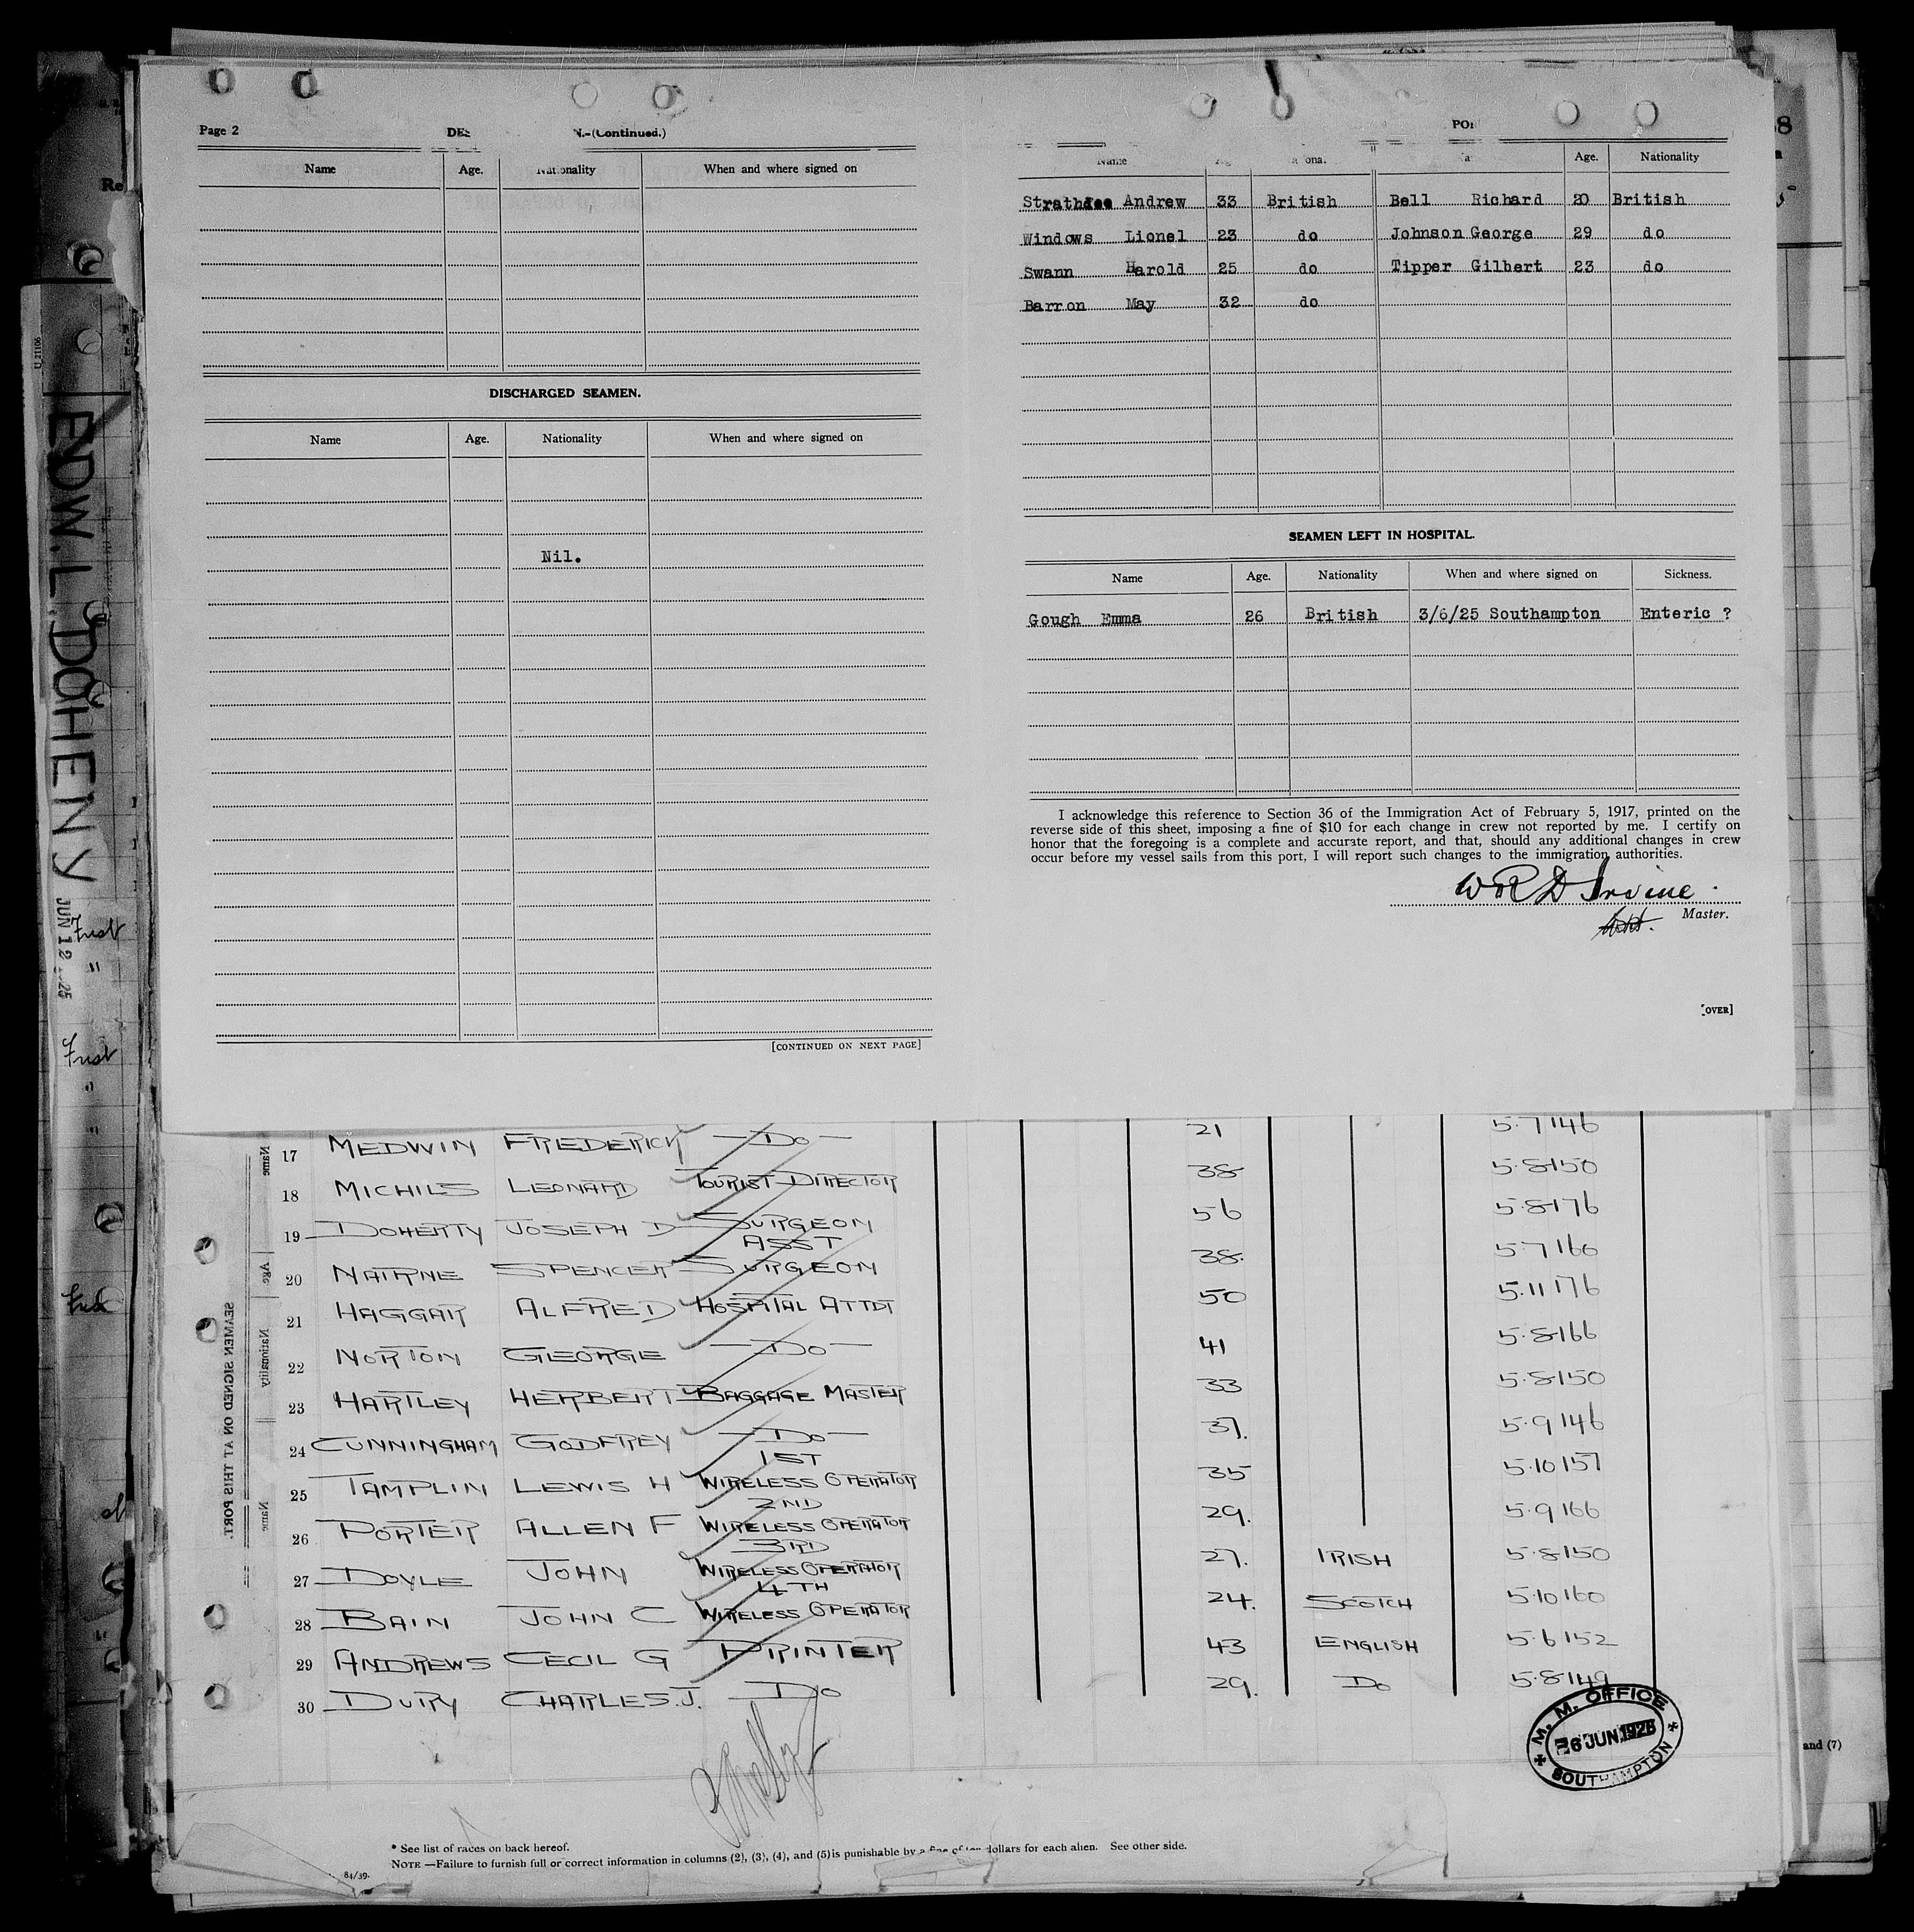 Page 2
N.-(Continued.)
Name Age. Nationality When and where signed on
DISCHARGED SEAMEN.
Name Age. Nationality When and where signed on
Nil.
[CONTINUED ON NEXT PAGE]
Name Age. Nationality
Strathdee Andrew 33 British Bell Richard 20 British
Windows Lionel 23 do Johnson George 29 do
Swann Harold 25 do Tipper Gilbert 23 do
Barron May 32 do
SEAMEN LEFT IN HOSPITAL.
Name Age. Nationality When and where signed on Sickness.
Gough Emma 26 British 3/6/25 Southampton Enteric ?
I acknowledge this reference to Section 36 of the Immigration Act of February 5, 1917, printed on the
reverse side of this sheet, imposing a fine of $10 for each change in crew not reported by me. I certify on
honor that the foregoing is a complete and accurate report, and that, should any additional changes in crew
occur before my vessel sails from this port, I will report such changes to the immigration authorities.
W R D Irvine
Master.
[OVER]
EDW. L. DOHENY
JUN 12 25
U 21106
17 MEDWIN FREDERICK —Do— 21 5.7 146
18 MICHILS LEONARD TOURIST DIRECTOR 38 5.8 150
19 DOHERTY JOSEPH D SURGEON 56 5.8 176
ASST
20 NAIRNE SPENCER SURGEON 38. 5.7 160
21 HAGGAR ALFRED HOSPITAL ATTDT 50 5.11 176
22 NORTON GEORGE —Do— 41 5.8 166
23 HARTLEY HERBERT BAGGAGE MASTER 33 5.8 150
24 CUNNINGHAM GODFREY —Do— 37. 5.9 146
1ST
25 TAMPLIN LEWIS H WIRELESS OPERATOR 35 5.10 157
2ND
26 PORTER ALLEN F WIRELESS OPERATOR 29. 5.9 166
3RD
27 DOYLE JOHN WIRELESS OPERATOR 27. IRISH 5.8 150
4TH
28 BAIN JOHN C WIRELESS OPERATOR 24. SCOTCH 5.10 160
29 ANDREWS CECIL G PRINTER 43 ENGLISH 5.6 152
30 DURY CHARLES.J. Do 29. Do 5.8 149
M. M. OFFICE
6 JUN 1925
SOUTHAMPTON
SEAMEN SIGNED ON AT THIS PORT.
Name
Age
Nationality
Name
and (7)
* See list of races on back hereof.
NOTE —Failure to furnish full or correct information in columns (2), (3), (4), and (5) is punishable by a fine of ten dollars for each alien. See other side.
84/39.